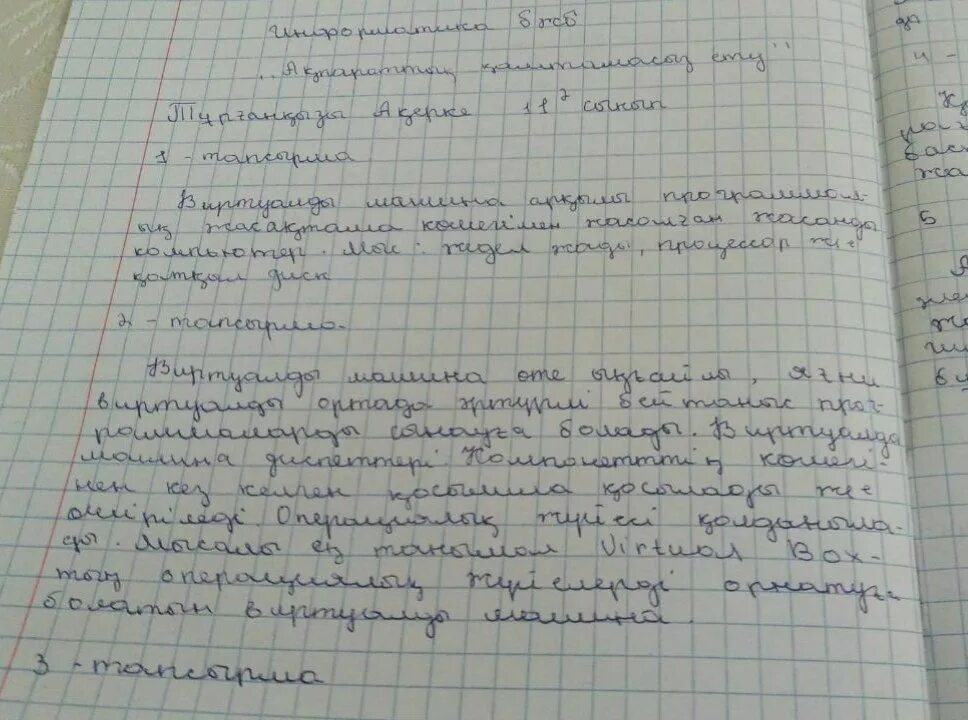 Информатика бжб
„Ақпараттық қамтамасыз ету"
Тұрғанқызы Ақерке 11² сынып
1 - тапсырма
Виртуалды машина арқылы программал-
ық жасақтама көмегімен жасалған жасанды
компьютер. Мыс : жедел жады, процессор ж-е
қатқыл диск
2 - тапсырма.
Виртуалды машина өте ыңғайлы, яғни
виртуалды ортада әртүрлі бейтаныс прог-
раммаларды сынауға болады. Виртуалды
машина диспеттері. Компонеттің көмегі-
нен кез келген қосымша қосылады ж-е
өшіріледі. Операциялық жүйесі қолданыла-
ды. Мысалы ең танымал Virtual Box-
тың операциялық жүйелерді орнатуға
болатын виртуалды машина.
3 - тапсырма
да
4 -
5